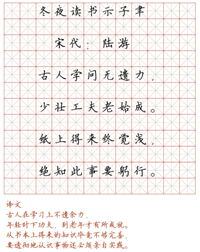 冬夜读书示子聿
宋代：陆游
古人学问无遗力，
少壮工夫老始成。
纸上得来终觉浅，
绝知此事要躬行。
译文
古人在学习上不遗余力，
年轻时下功夫，到老年才有所成就。
从书本上得来的知识毕竟不够完善，
要透彻地认识事物还必须亲自实践。